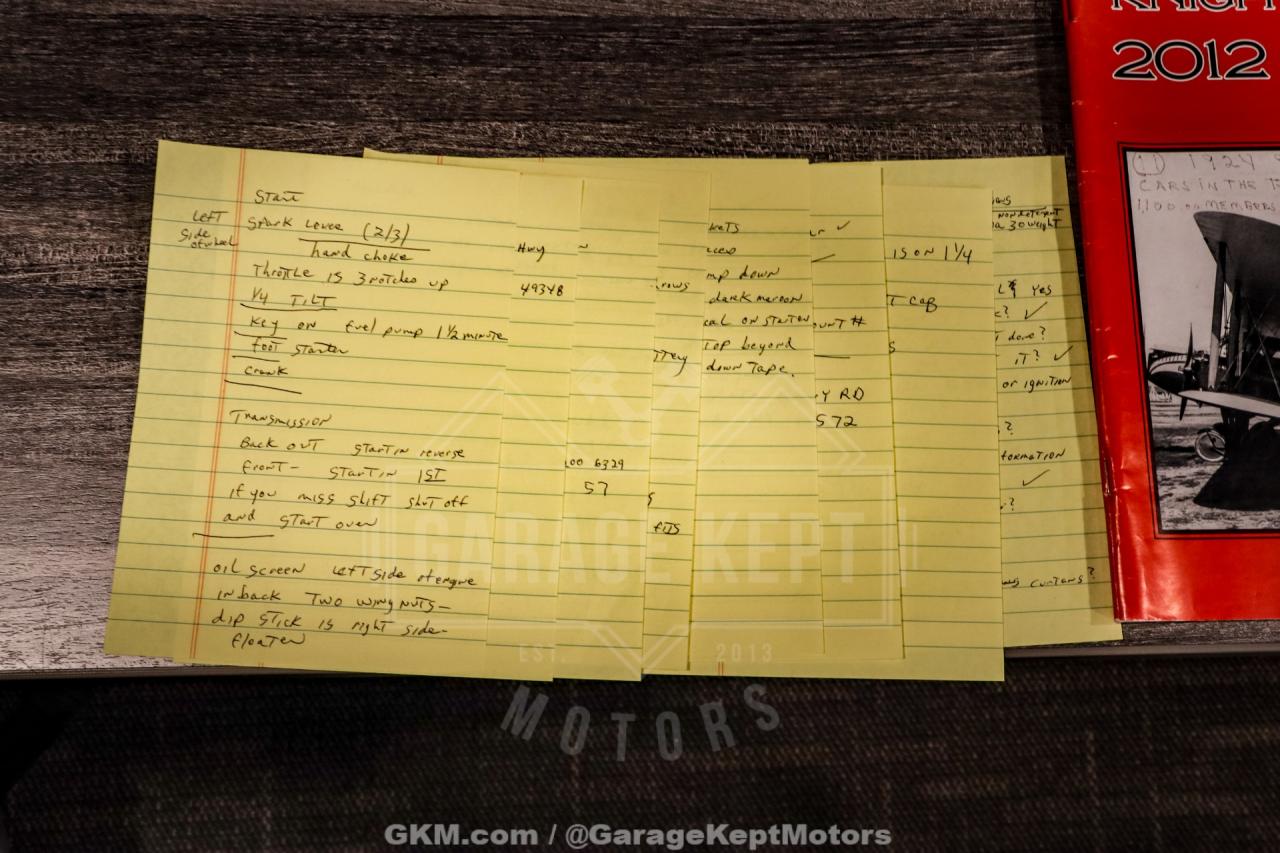 Start
Left
Side
of wheel
Spark Lever (2/3)
hand choke
Throttle is 3 notches up
1/4 TILT
Key on fuel pump 1 1/2 minute
foot starter
Crank
Transmission
Back out start in reverse
front - start in 1ST
if you miss shift shut off
and start over
oil screen left side of engine
in back two wing nuts -
dip stick is right side -
floater
Hwy
49348
00 6329
57
rows
ttery
s
fits
kets
mp down
dark maroon
eal on starter
top beyond
down tape.
ur ✓
ount #
y RD
572
is on 1 1/4
t cap
s
non detergent
30 weight
Yes
? ✓
t done?
it? ✓
or ignition
?
formation
✓
?
curtans?
KNIGH
2012
(1) 1924
CARS IN THE
1,100.00 MEMBERS
GARAGE KEPT
EST. 2013
MOTORS
GKM.com / @GarageKeptMotors